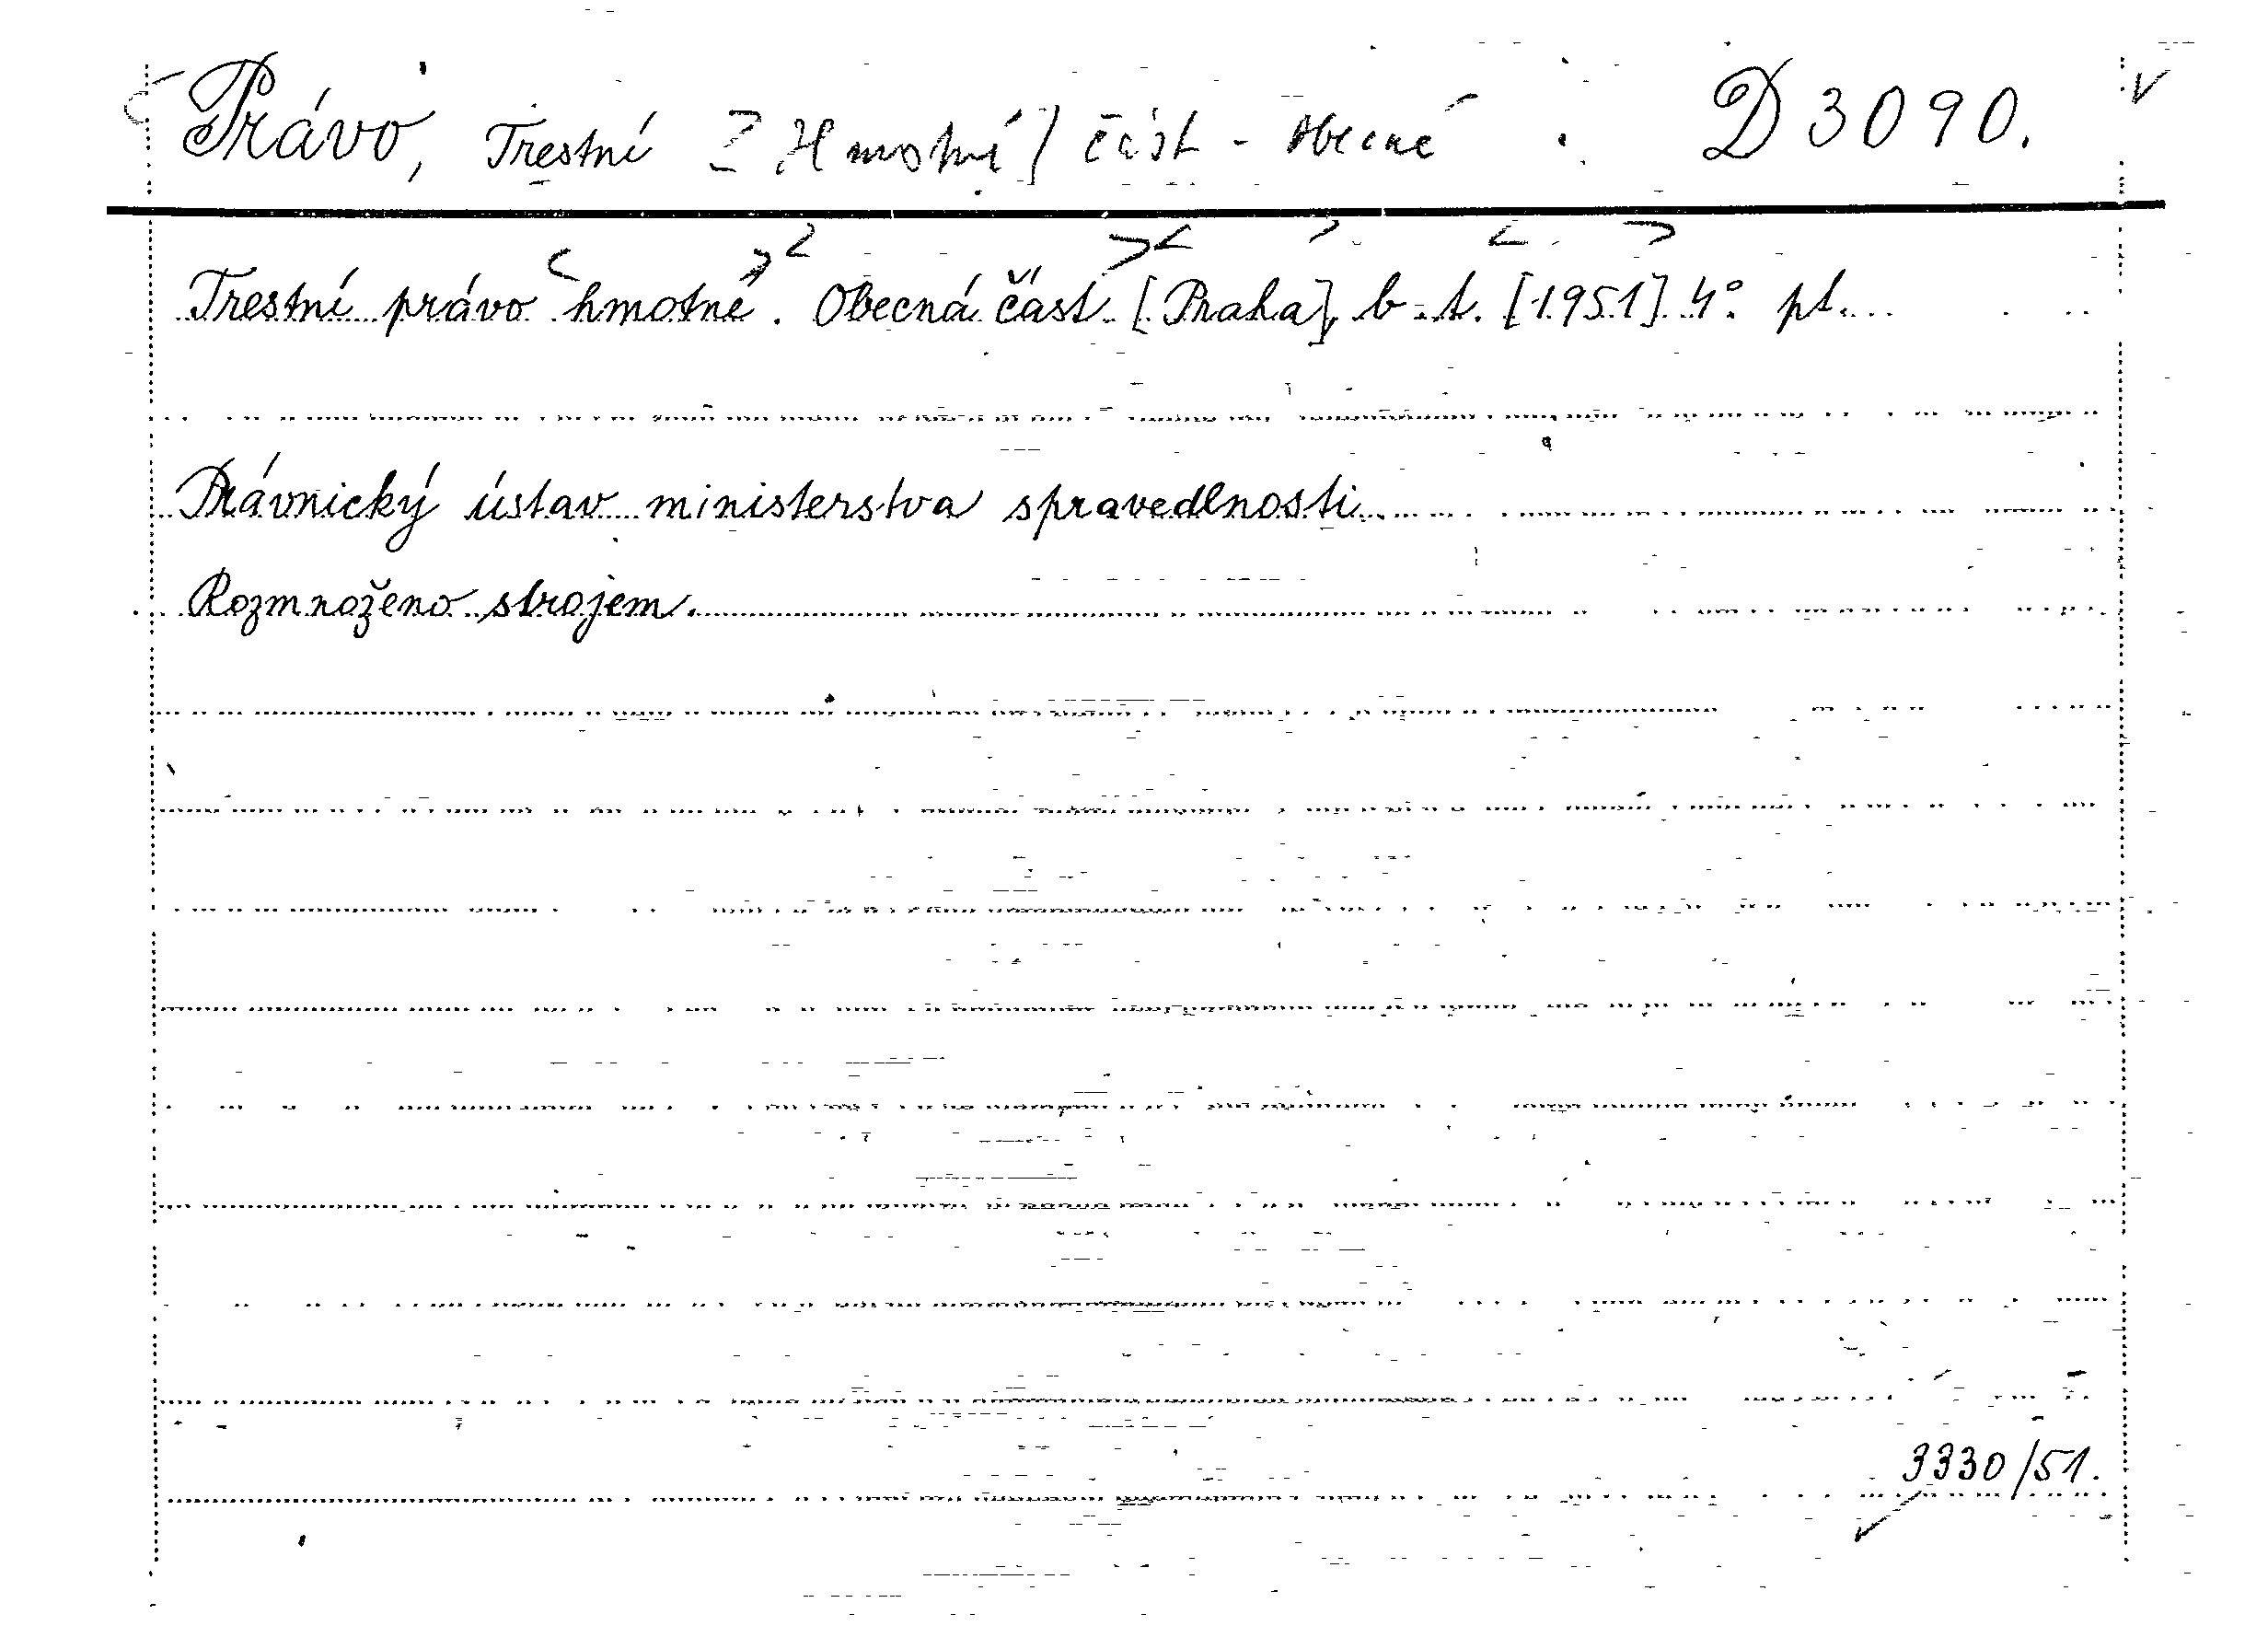 Právo, Trestní [Hmotné] část - obecné. D 3090.
Trestní právo hmotné. Obecná část. [Praha], b. t. [1951] 4° pl.
Právnický ústav ministerstva spravedlnosti.
Rozmnoženo strojem.
3330/51.